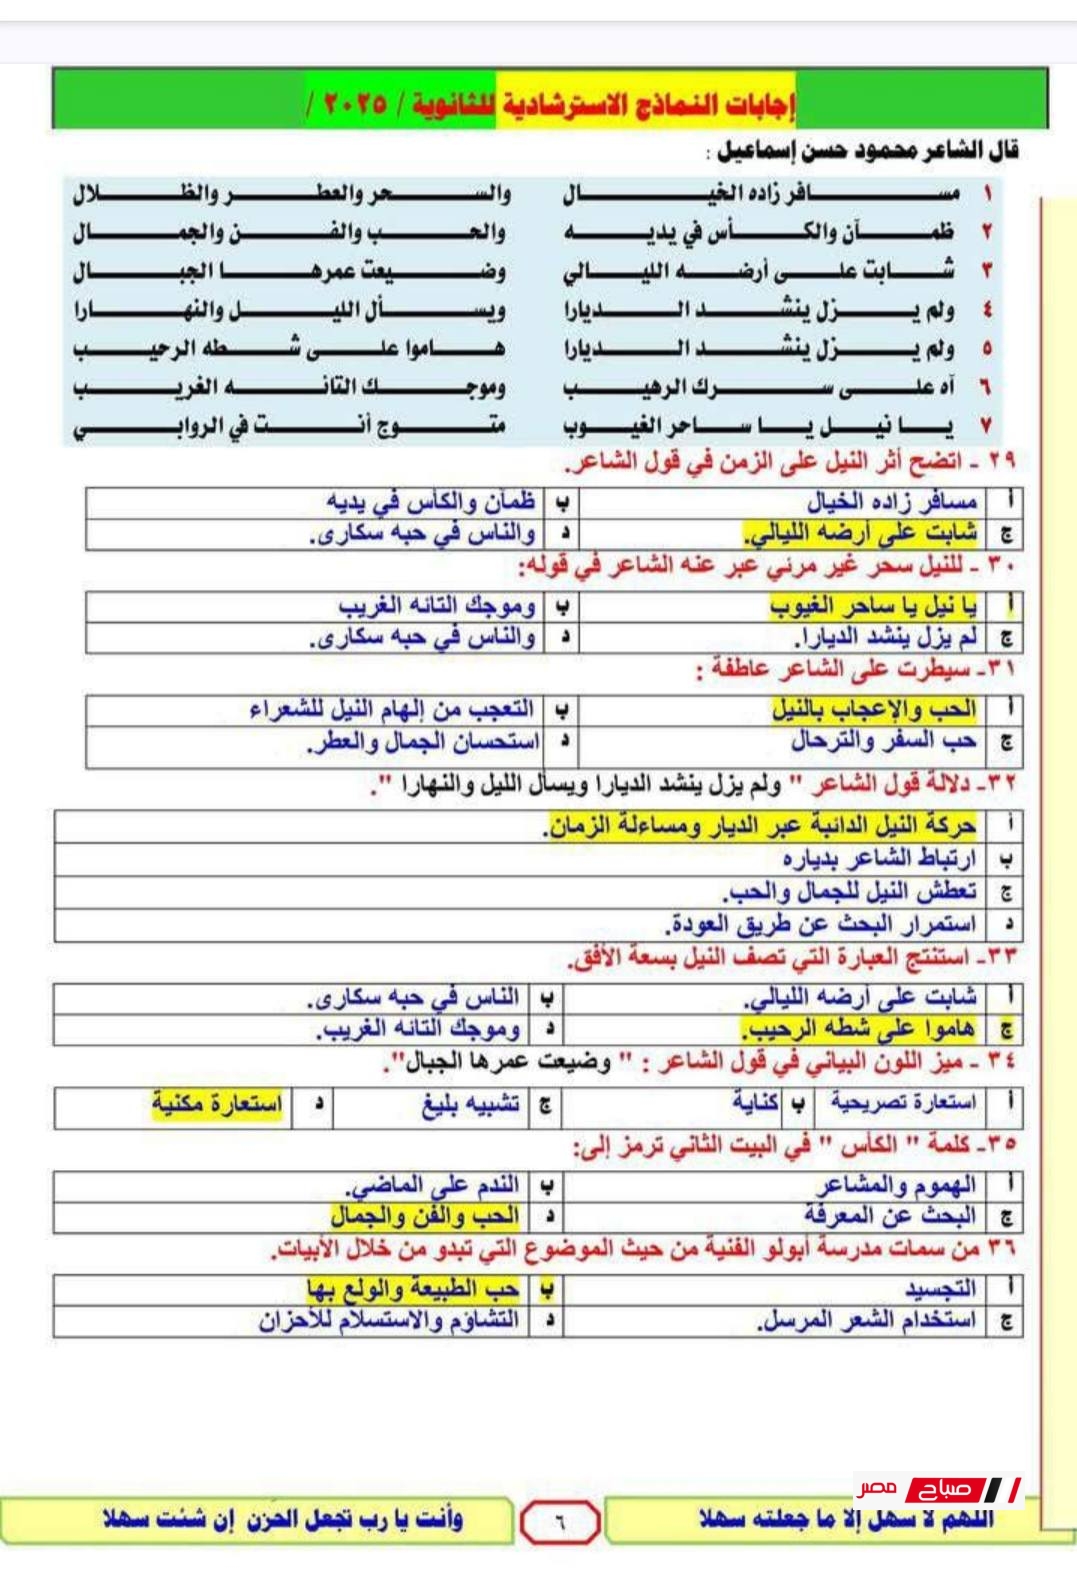 إجابات النماذج الاسترشادية للثانوية / ٢٠٢٥ /
قال الشاعر محمود حسن إسماعيل :
١ مسافر زاده الخيال والسحر والعطر والظلال
٢ ظمآن والكأس في يديه والحب والفن والجمال
٣ شابت على أرضه الليالي وضيعت عمرها الجبال
٤ ولم يزل ينشد الديارا ويسأل الليل والنهارا
٥ ولم يزل ينشد الديارا هاموا على شطه الرحيب
٦ آه على سرك الرهيب وموجك التائه الغريب
٧ يا نيل يا ساحر الغيوب متوج أنت في الروابي
٢٩ - اتضح أثر النيل على الزمن في قول الشاعر.
أ مسافر زاده الخيال ب ظمآن والكأس في يديه
ج شابت على أرضه الليالي. د والناس في حبه سكارى.
٣٠ - للنيل سحر غير مرئي عبر عنه الشاعر في قوله:
أ يا نيل يا ساحر الغيوب ب وموجك التائه الغريب
ج لم يزل ينشد الديارا. د والناس في حبه سكارى.
٣١- سيطرت على الشاعر عاطفة :
أ الحب والإعجاب بالنيل ب التعجب من إلهام النيل للشعراء
ج حب السفر والترحال د استحسان الجمال والعطر.
٣٢- دلالة قول الشاعر " ولم يزل ينشد الديارا ويسأل الليل والنهارا ".
أ حركة النيل الدائبة عبر الديار ومساءلة الزمان.
ب ارتباط الشاعر بدياره
ج تعطش النيل للجمال والحب.
د استمرار البحث عن طريق العودة.
٣٣- استنتج العبارة التي تصف النيل بسعة الأفق.
أ شابت على أرضه الليالي. ب الناس في حبه سكارى.
ج هاموا على شطه الرحيب. د وموجك التائه الغريب.
٣٤ - ميز اللون البياني في قول الشاعر : " وضيعت عمرها الجبال".
أ استعارة تصريحية ب كناية ج تشبيه بليغ د استعارة مكنية
٣٥- كلمة " الكأس " في البيت الثاني ترمز إلى:
أ الهموم والمشاعر ب الندم على الماضي.
ج البحث عن المعرفة د الحب والفن والجمال
٣٦ من سمات مدرسة أبولو الفنية من حيث الموضوع التي تبدو من خلال الأبيات.
أ التجسيد ب حب الطبيعة والولع بها
ج استخدام الشعر المرسل. د التشاؤم والاستسلام للأحزان
صباح مصر
اللهم لا سهل إلا ما جعلته سهلا ٦ وأنت يا رب تجعل الحَزن إن شئت سهلا